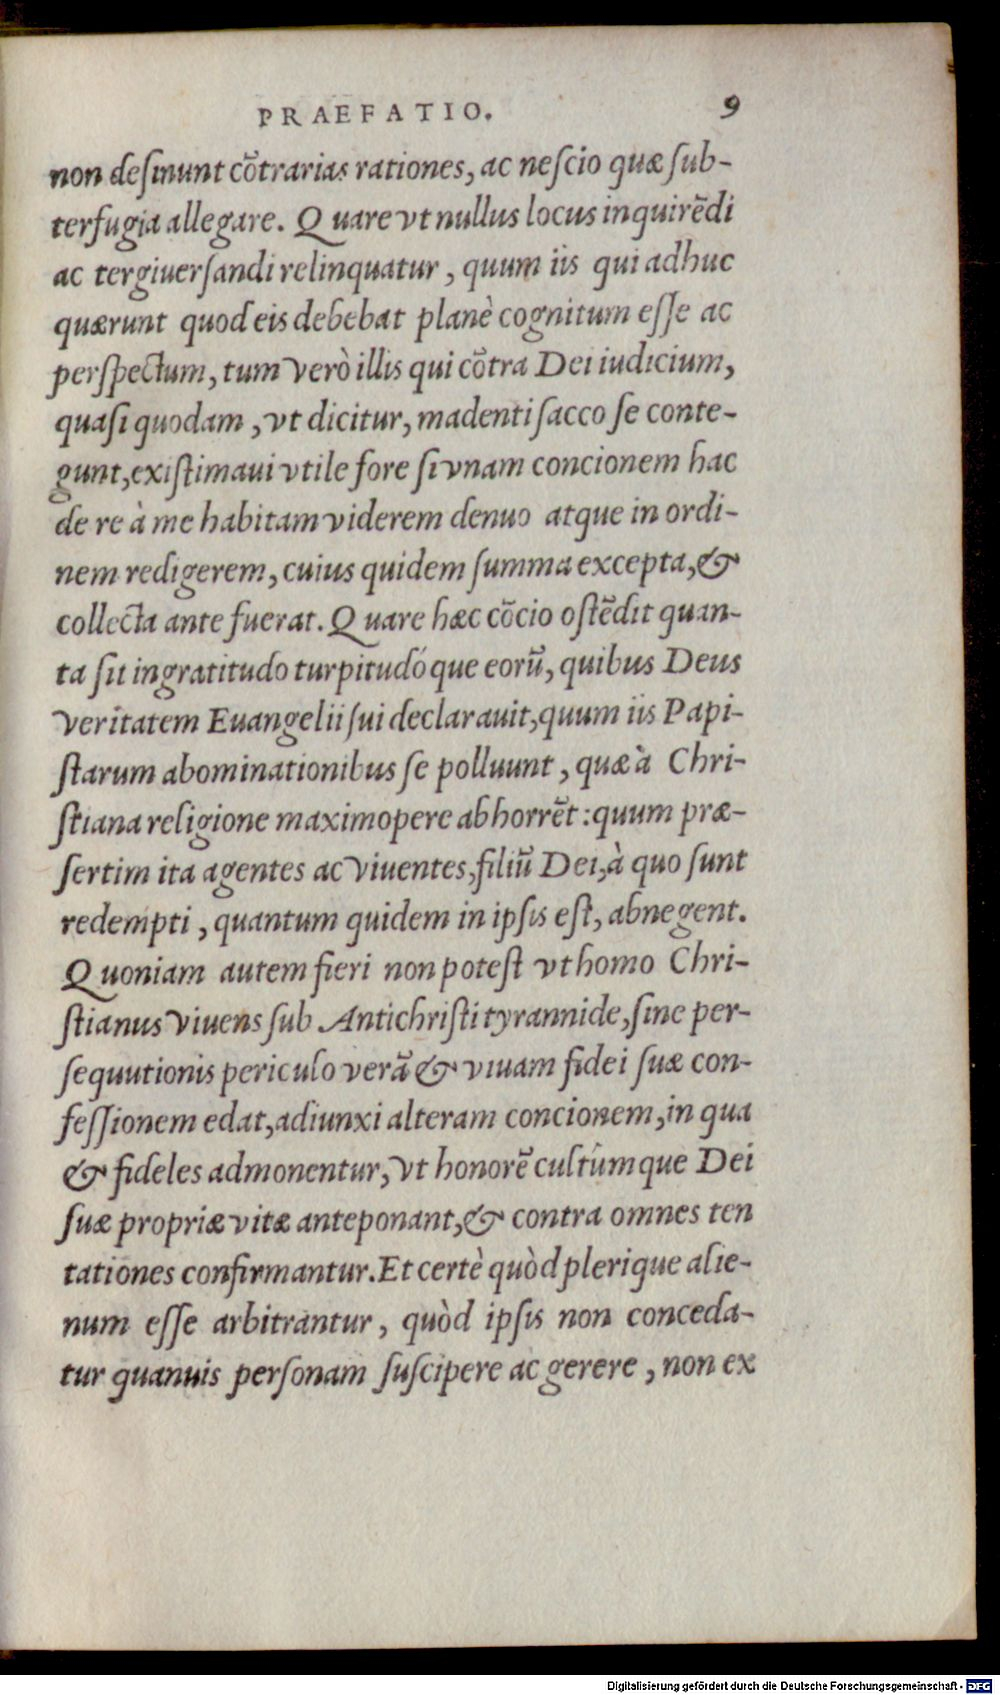 PRAEFATIO. 9
non desinunt cõtrarias rationes, ac nescio quæ sub-
terfugia allegare. Quare vt nullus locus inquirẽdi
ac tergiuersandi relinquatur, quum iis qui adhuc
quærunt quod eis debebat planè cognitum esse ac
perspectum, tum verò illis qui cõtra Dei iudicium,
quasi quodam, vt dicitur, madenti sacco se conte-
gunt, existimaui vtile fore si vnam concionem hac
de re à me habitam viderem denuo atque in ordi-
nem redigerem, cuius quidem summa excepta, &
collecta ante fuerat. Quare hæc cõcio ostẽdit quan-
ta sit ingratitudo turpitudóque eorũ, quibus Deus
veritatem Euangelii sui declarauit, quum iis Papi-
starum abominationibus se polluunt, quæ à Chri-
stiana religione maximopere abhorrẽt: quum præ-
sertim ita agentes ac viuentes, filiũ Dei, à quo sunt
redempti, quantum quidem in ipsis est, abnegent.
Quoniam autem fieri non potest vt homo Chri-
stianus viuens sub Antichristi tyrannide, sine per-
sequutionis periculo verã & viuam fidei suæ con-
fessionem edat, adiunxi alteram concionem, in qua
& fideles admonentur, vt honorẽ cultúmque Dei
suæ propriæ vitæ anteponant, & contra omnes ten
tationes confirmantur. Et certè quòd plerique alie-
num esse arbitrantur, quòd ipsis non conceda-
tur quanuis personam suscipere ac gerere, non ex
Digitalisierung gefördert durch die Deutsche Forschungsgemeinschaft - DFG